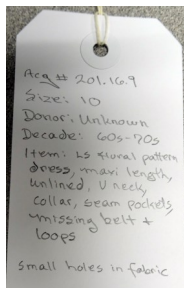 Acq # 201.16.9
Size: 10
Donor: Unknown
Decade: 60s-70s
Item: LS floral pattern
dress, maxi length,
unlined, V neck,
collar, seam pockets,
missing belt +
loops
small holes in fabric